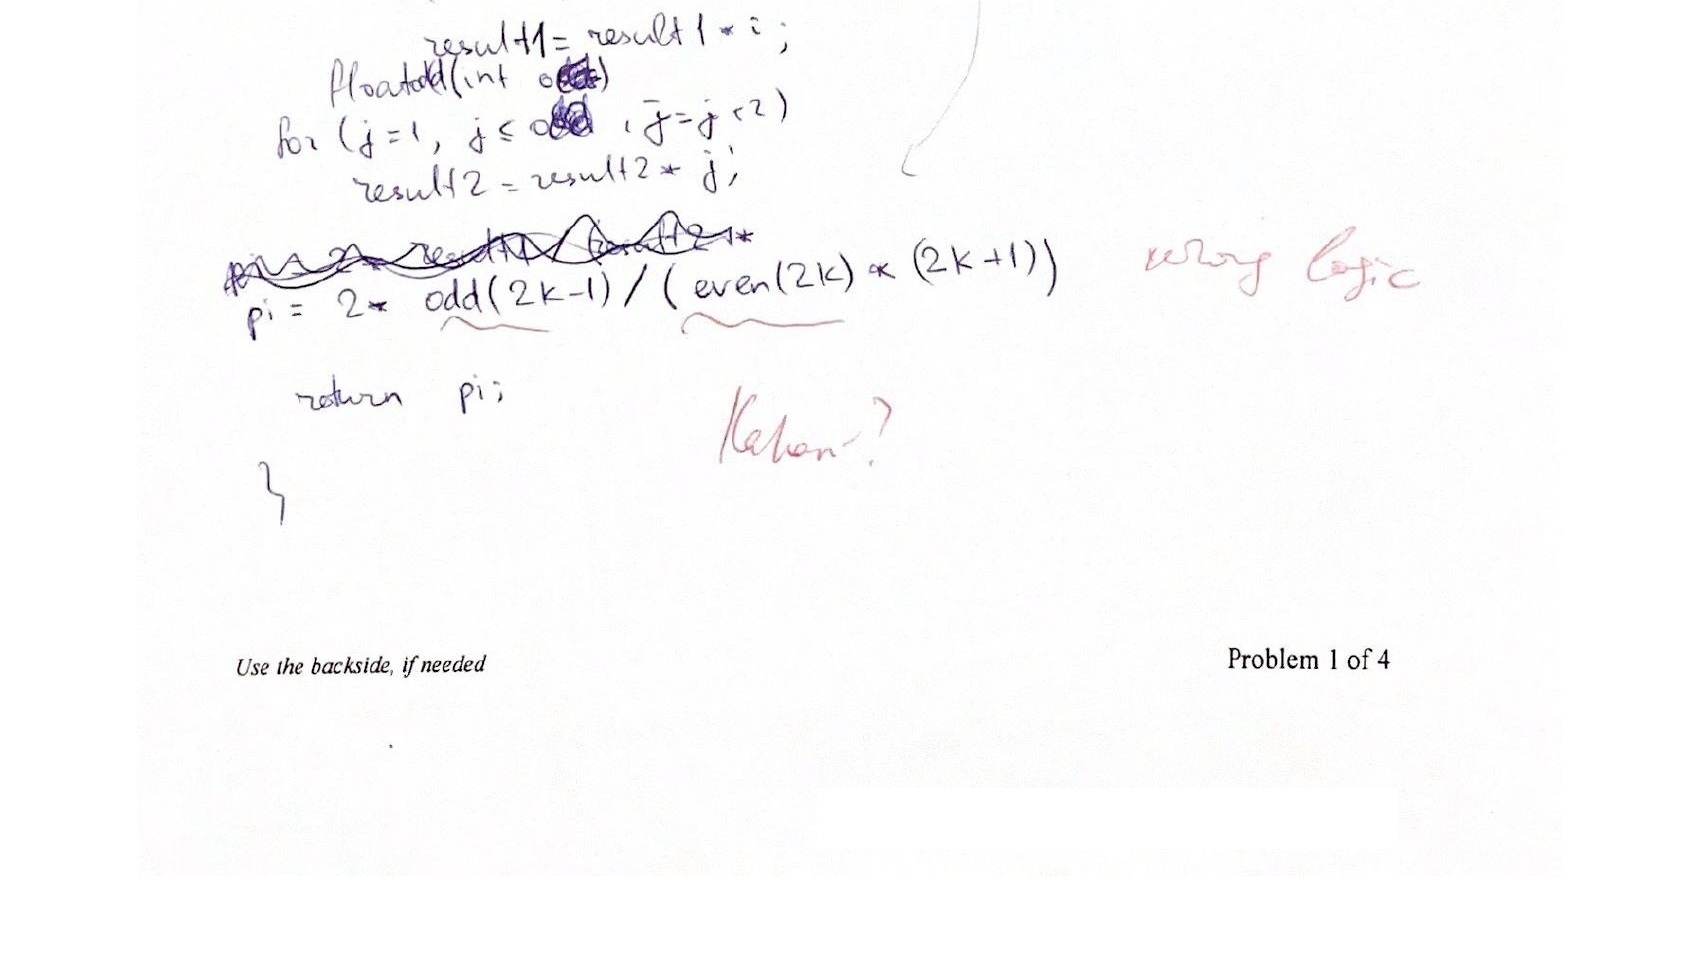 result1 = result1 * i ;
float odd(int
for (j=1, j ≤ , j=j+2)
result2 = result2 * j;
pi = 2 * result1 result2 *
pi = 2 * odd(2k-1) / (even(2k) * (2k+1)) wrong logic
return pi;
Kahan-?
}
Use the backside, if needed Problem 1 of 4